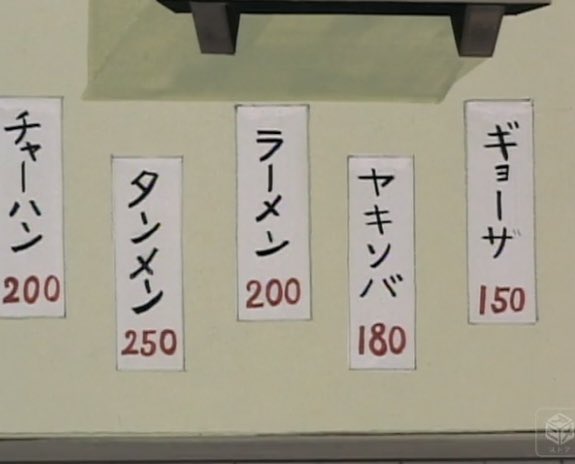 ギョーザ
150
ヤキソバ
180
ラーメン
200
タンメン
250
チャーハン
200